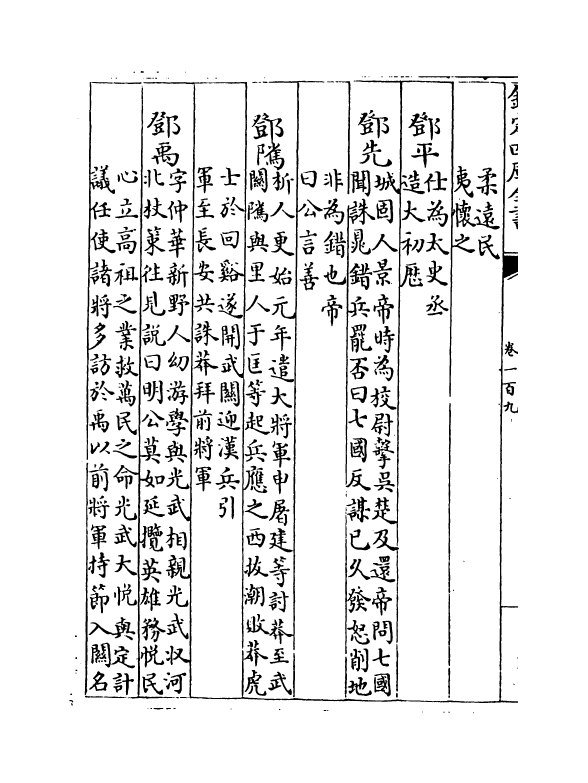 欽定四庫全書
卷一百九
柔遠民
夷懷之
鄧平
仕為太史丞
造大初厯
鄧先
城固人景帝時為挍尉擊吳楚及還帝問七國
聞誅晁錯兵罷否曰七國反謀已久發怒削地
非為錯也帝
曰公言善
鄧隲
析人更始元年遣大將軍申屠建等討莽至武
關隲與里人于匡等起兵應之西拔潮敗莽虎
士於回谿遂開武關迎漢兵引
軍至長安共誅莽拜前將軍
鄧禹
字仲華新野人幼游學與光武相親光武収河
北杖策往見說曰明公莫如延攬英雄務悅民
心立高祖之業救萬民之命光武大悅與定計
議任使諸將多訪於禹以前將軍持節入關名